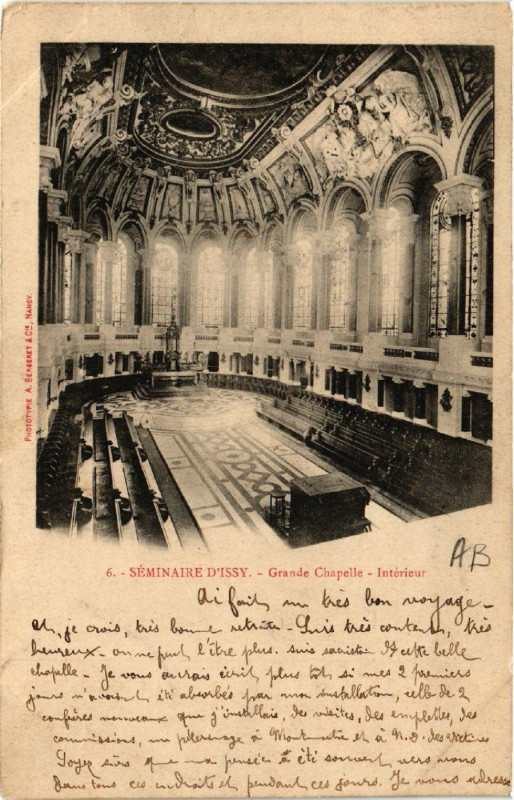 PHOTOTYPIE A. BERGERET & Cie, NANCY.
6. - SÉMINAIRE D'ISSY. - Grande Chapelle - Intérieur
AB
Ai fait un très bon voyage -
et, je crois, très bonne retraite - Suis très content, très
heureux - on ne peut l'être plus. suis sacristain de cette belle
chapelle - Je vous aurais écrit plus tôt si mes 2 premiers
jours n'avaient été absorbés par mon installation, celle de 2
confrères nouveaux que j'installais, des visites, des emplettes, des
commissions, un pèlerinage à Montmartre et à N.D. des Victoires
Soyez sûrs que ma pensée a été souvent vers vous
dans tous ces endroits et pendant ces jours. Je vous adresse